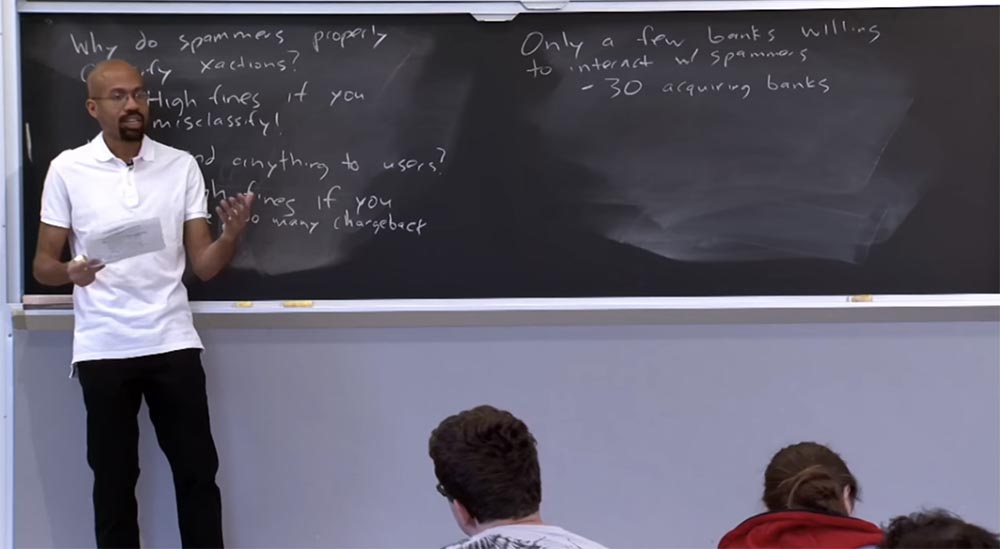 Why do spammers properly
xactions?
High fines if you
misclassify!
anything to users?
fines if you
many chargeback
Only a few banks willing
to interact w/ spammers
- 30 acquiring banks